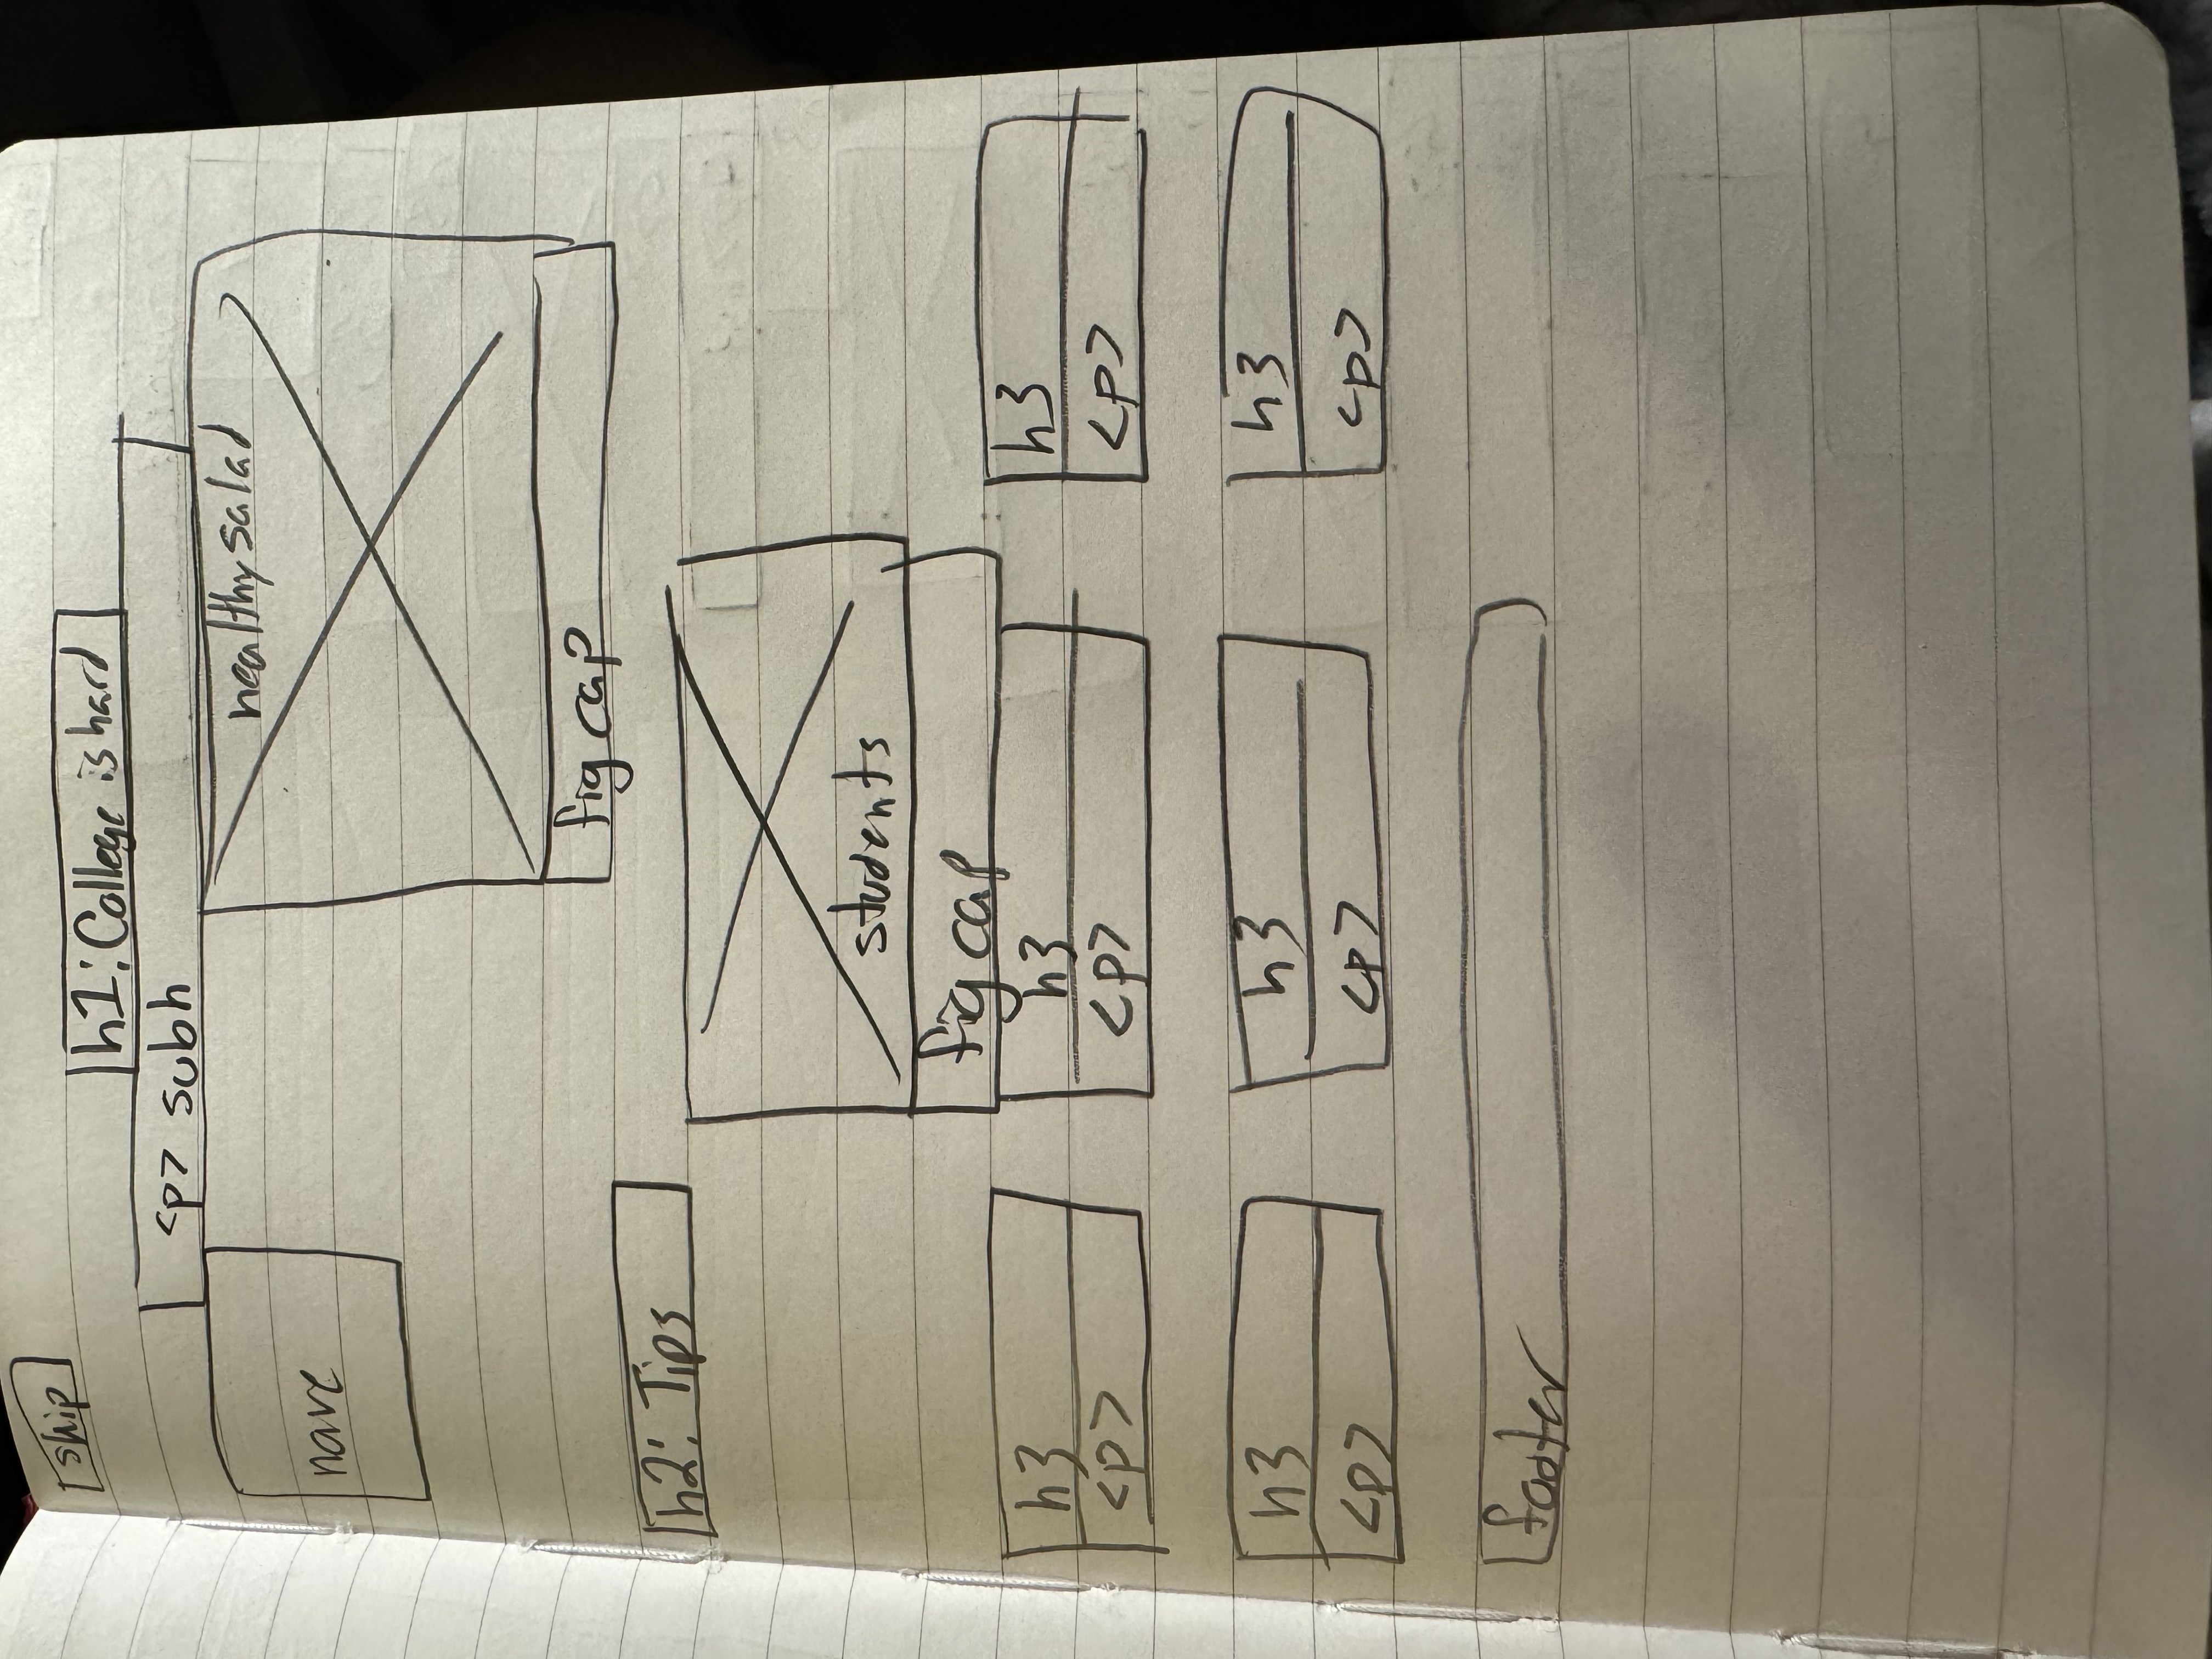 skip
h1: College is hard
<p> subh
healthy salad
nave
fig cap
h2: Tips
students
fig cap
h3 h3 h3
<p> <p> <p>
h3 h3 h3
<p> <p> <p>
footer